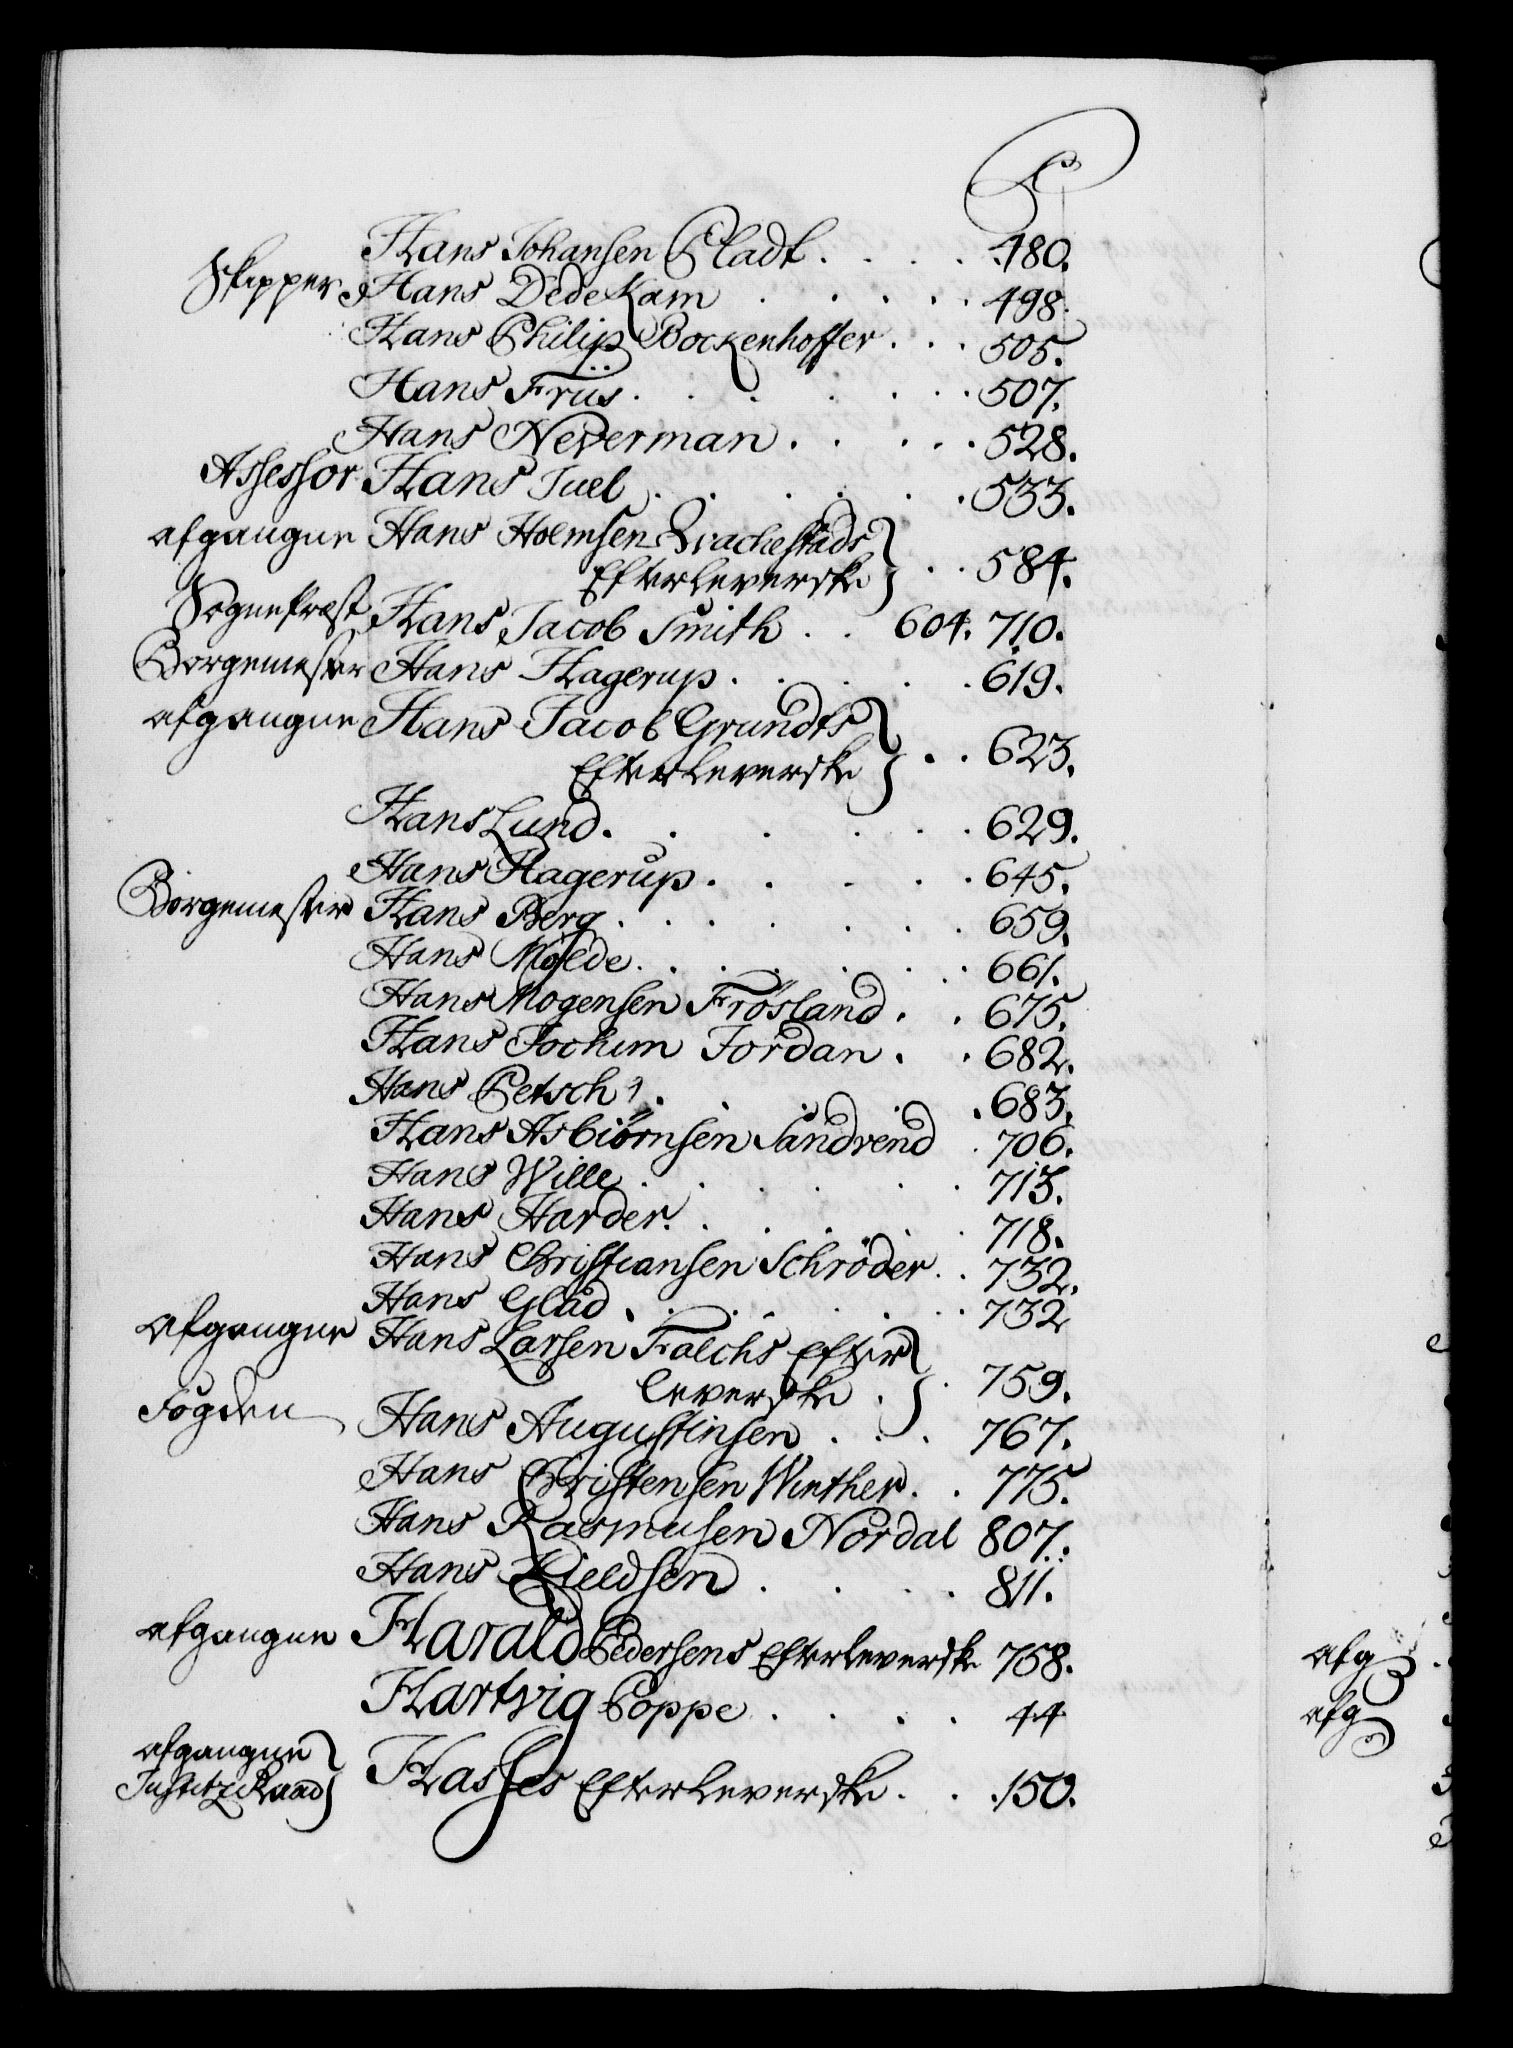 Hans Johansen Pladt . . . . 480.
Skipper Hans Dedekam . . . . 498.
Hans Philip Bockenhoffer . . . 505.
Hans Friis . . . . . . 507.
Hans Neverman . . . . . 528.
Assessor Hans Juel . . . . . 533.
afgangne Hans Holmsen Brachestads
Efterleverske } . . 584.
Sognepræst Hans Jacob Smith . . 604. 710.
Borgemester Hans Hagerup . . . . . 619.
afgangne Hans Jacob Grundts
Efterleverske } . . 623.
Hans Lund . . . . . . 629.
Hans Hagerup . . . . . 645.
Borgemester Hans Berg . . . . . . 659.
Hans Molde . . . . . . 661.
Hans Mogensen Frösland . . 675.
Hans Jochim Jordan . . 682.
Hans Petsch . . . . . 683.
Hans Asbiörnsen Sandvend . 706.
Hans Wille . . . . . . 713.
Hans Harder . . . . . 718.
Hans Christiansen Schröder . . 732.
Hans Glad . . . . . . 732
afgangne Hans Larsen Falchs Efter
leverske . } . 759.
Fogden Hans Augustinsen . . . 767.
Hans Christensen Winther . . 775.
Hans Rasmusen Nordal 807.
Hans Kieldsen . . . . 811.
afgangne Harald Pedersens Efterleverske 758.
Hartvig Poppe . . . . 44
afgangne
Justitz Raad } Hasses Efterleverske . . 150.
afg
afg